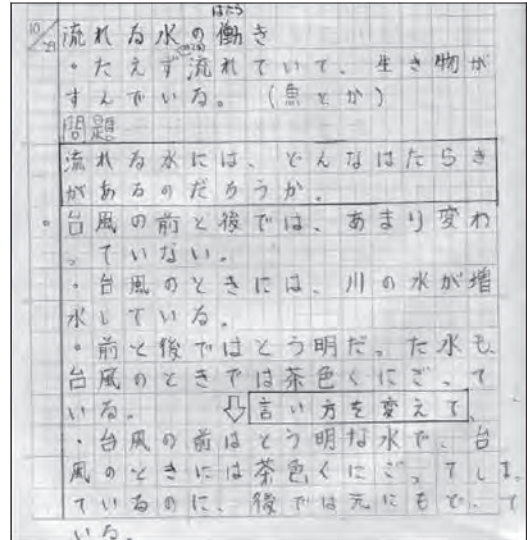 10/29 流れる水の働き
はたら
・たえず流れていて、生き物が
すんでいる。(魚とか)
問題
流れる水には、どんなはたらき
があるのだろうか。
・台風の前と後では、あまり変わ
っていない。
・台風のときには、川の水が増
水している。
・前と後ではとう明だった水も、
台風のときでは茶色くにごって
いる。⇩言い方を変えて、
・台風の前はとう明な水で、台
風のときには茶色くにごってしまっ
ているのに、後では元にもどって
いる。